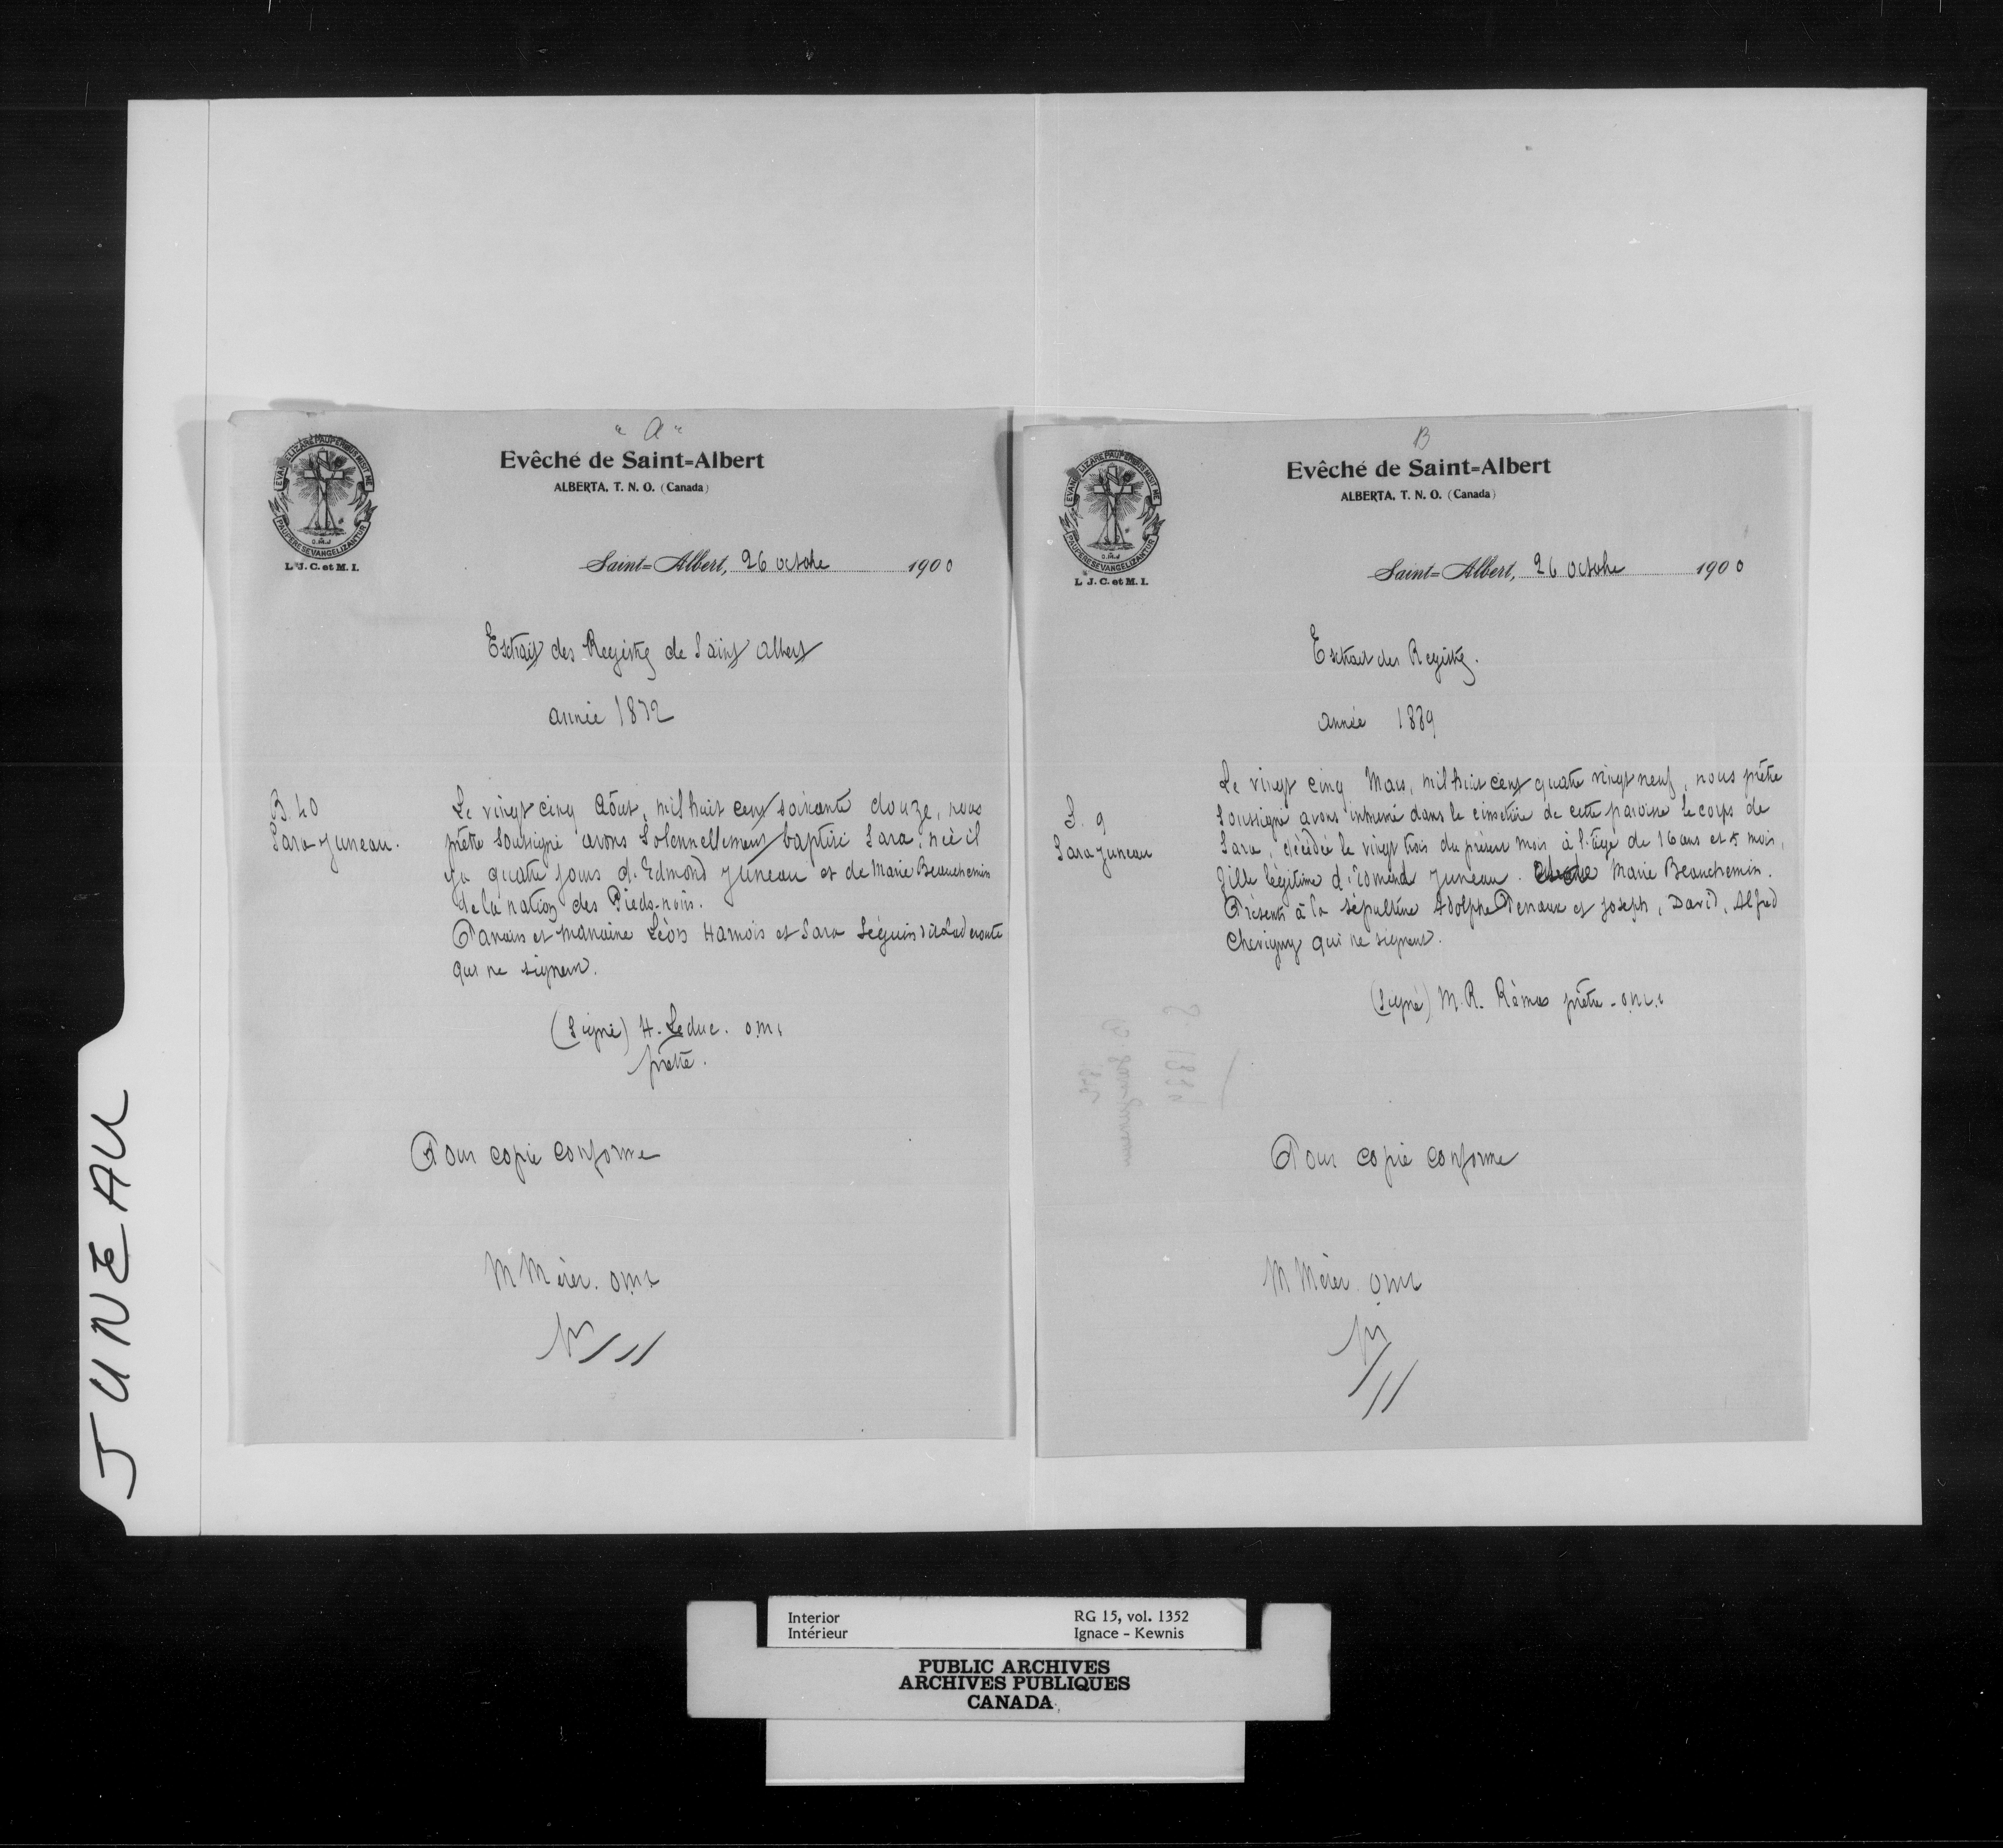 JUNEAU
"A"
EVANGELIZARE PAUPERIBUS MISIT ME
PAUPERES EVANGELIZANTUR
O.M.I
L. J. C. et M. I.
Evêché de Saint=Albert
ALBERTA, T. N. O. (Canada)
Saint=Albert, 26 octobre 1900
Extrait des Registres de Saint Albert
année 1872
B. 40
Sara Juneau.
Le vingt cinq Août, mil huit cent soixante douze, nous
prêtre soussigné avons solennellement baptisé Sara, née il
y a quatre jours d'Edmond Juneau et de Marie Beauchemin
de la nation des Pieds-noirs.
Parrain et marraine Léon Harnois et Sara Séguin dit Laderoute
qui ne signent.
(Signé) H. Leduc. o.m.i
prêtre.
Pour copie conforme
M Mérer. o.m.i
B
EVANGELIZARE PAUPERIBUS MISIT ME
PAUPERES EVANGELIZANTUR
O.M.I
L. J. C. et M. I.
Evêché de Saint=Albert
ALBERTA, T. N. O. (Canada)
Saint=Albert, 26 octobre 1900
Extrait des Registres.
année 1889
S. 9
Sara Juneau
Le vingt cinq Mars, mil huit cent quatre vingt neuf, nous prêtre
soussigné avons inhumé dans le cimetière de cette paroisse le corps de
Sara, décédée le vingt trois du présent mois à l'âge de 16 ans et 5 mois,
fille légitime d'Edmond Juneau. Marie Beauchemin.
Présents à la sépulture Adolphe et Joseph, David, Alfred
Chevigny qui ne signent.
(Signé) M. R. Rémas prêtre - o.m.i
Pour copie conforme
M Mérer o.m.i
Interior RG 15, vol. 1352
Intérieur Ignace - Kewnis
PUBLIC ARCHIVES
ARCHIVES PUBLIQUES
CANADA